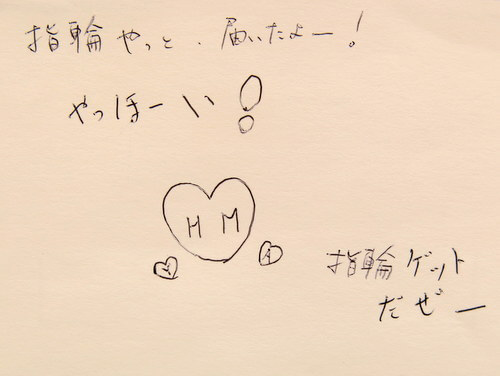 指輪やっと、届いたよー!
やっほーい!
H M
指輪ゲット
だぜー